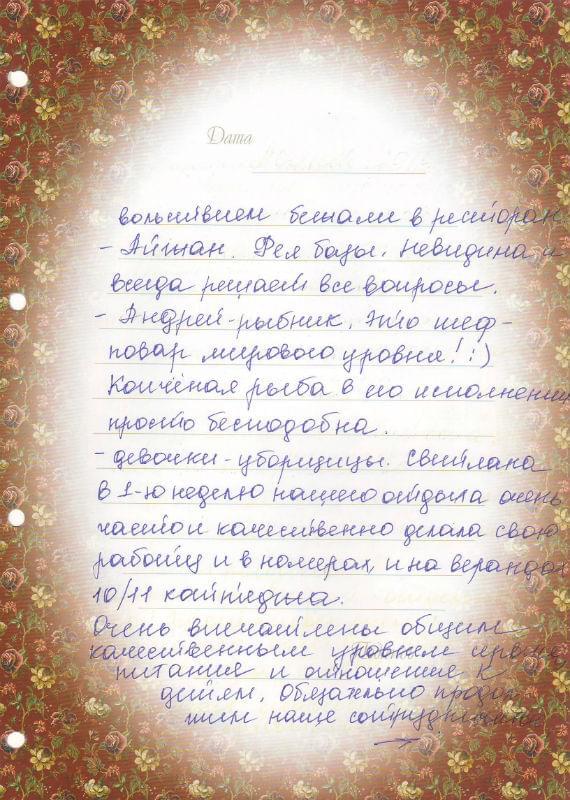 Дата
вольствием бежали в ресторан
- Айжан. Фея базы. Невидима и
всегда решает все вопросы.
- Андрей-рыбник. Это шеф-
повар мирового уровня! :)
Копчёная рыба в его исполнении
просто бесподобна.
- девочки-уборщицы. Светлана
в 1-ю неделю нашего отдыха очень
часто и качественно делала свою
работу и в номерах, и на верандах
10/11 коттеджа.
Очень впечатлены общим
качественным уровнем
питания и отношение к
детям. Обязательно продол
жим наше сотрудничество